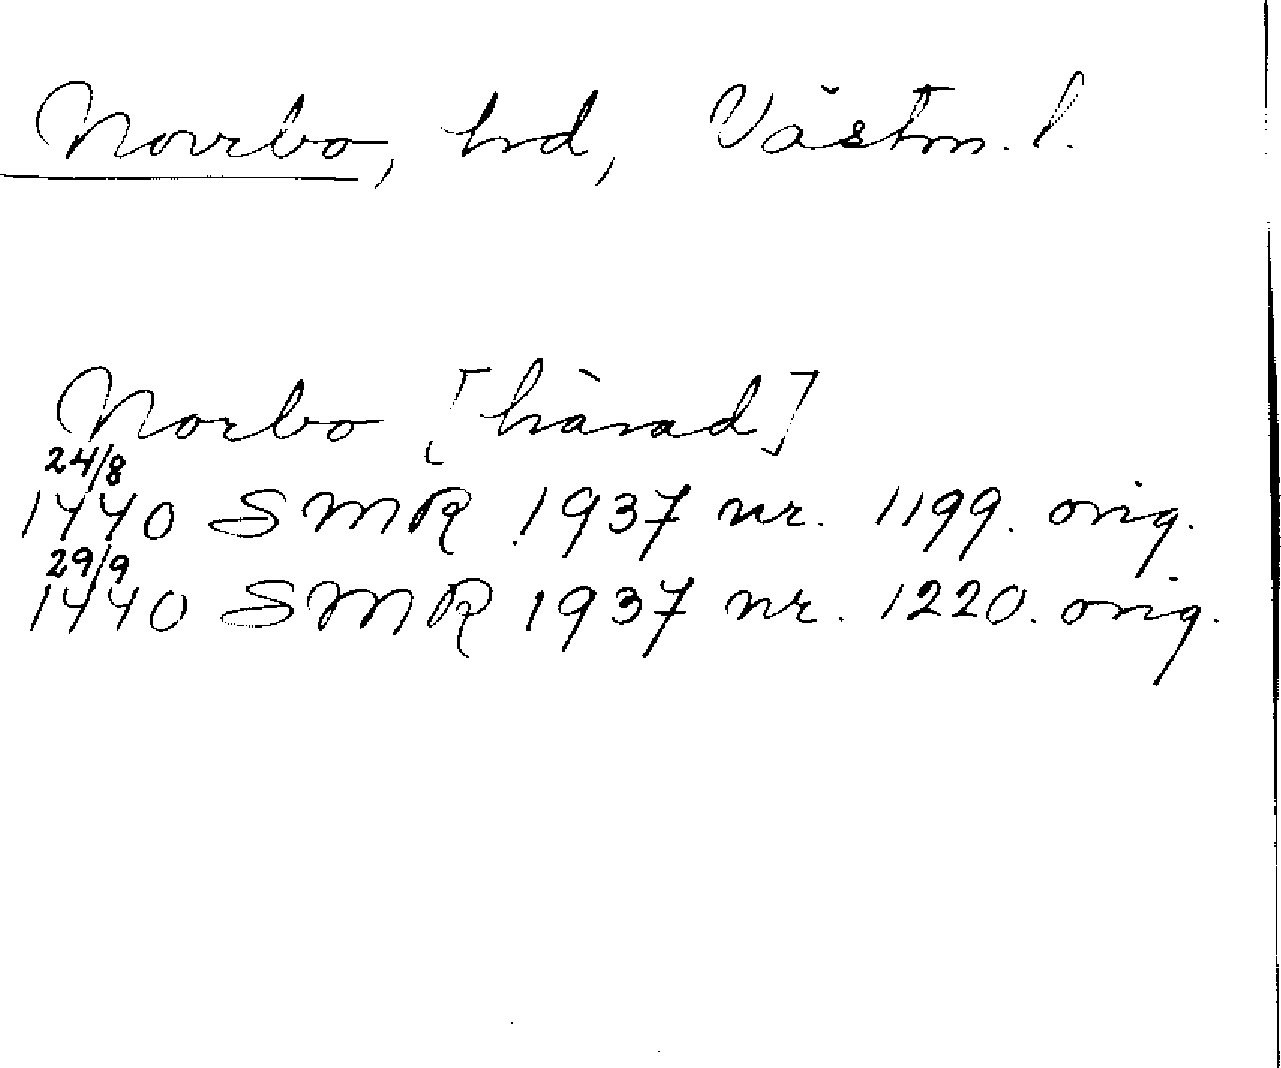 Norrbo, hd, Västm. l.
Norbo [härad]
24/8
1440 SMR 1937 nr. 1199. orig.
29/9
1440 SMR 1937 nr. 1220. orig.